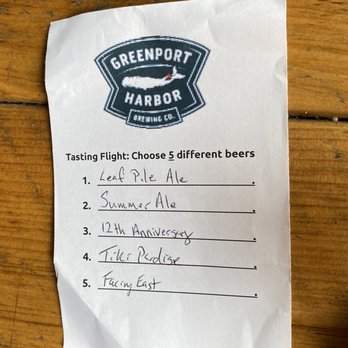 GREENPORT
HARBOR
BREWING CO.
Tasting Flight: Choose 5 different beers
1. Leaf Pile Ale
2. Summer Ale
3. 12th Anniversary
4. Tiki Perdise
5. Facing East